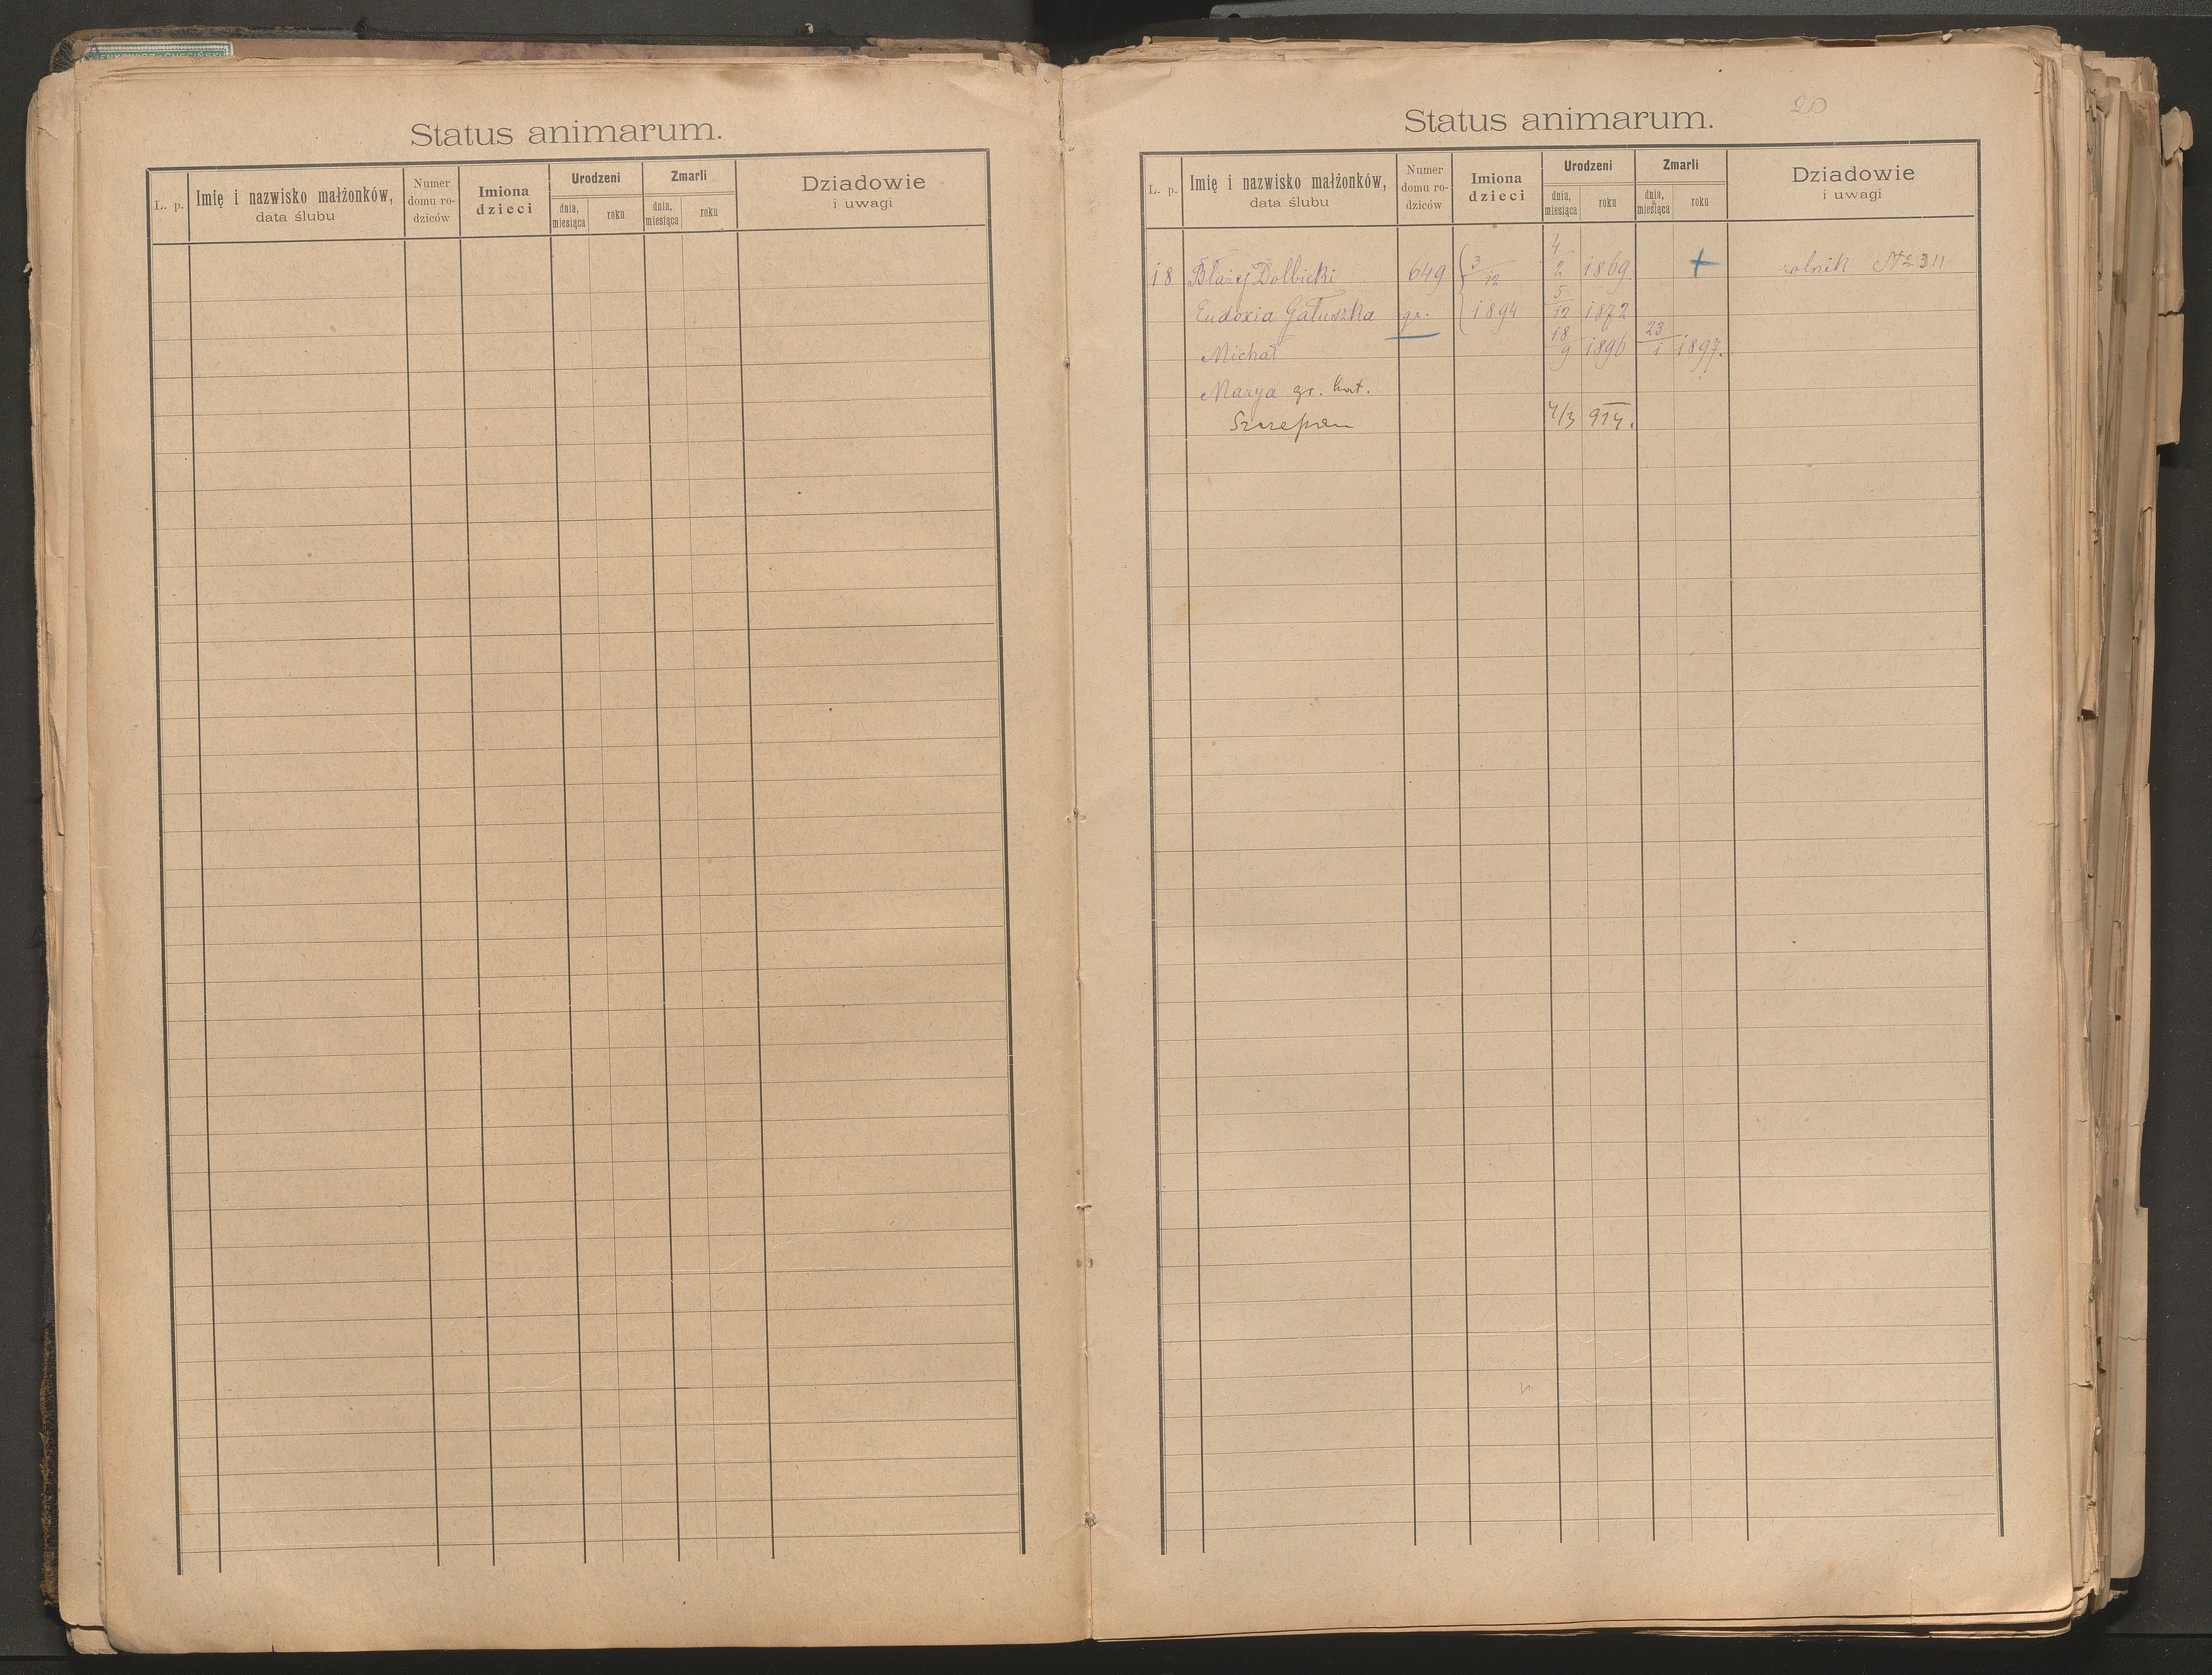 Status animarum.
L. p. Imię i nazwisko małżonków, data ślubu Numer domu rodziców Imiona dzieci Urodzeni dnia, miesiąca roku Zmarli dnia, miesiąca roku Dziadowie i uwagi
Status animarum. 20
L. p. Imię i nazwisko małżonków, data ślubu Numer domu ro-dziców Imiona dzieci Urodzeni dnia, miesiąca roku Zmarli dnia, miesiąca roku Dziadowie i uwagi
18 Błażej Dolbicki 649 3/12 4/2 1869 + rolnik № 311
Eudoxia Gałuszka gr. 1894 5/12 1872
Michał 18/9 1896 23/1 1897.
Marya gr. kat.
Szczepan 4/3 914.